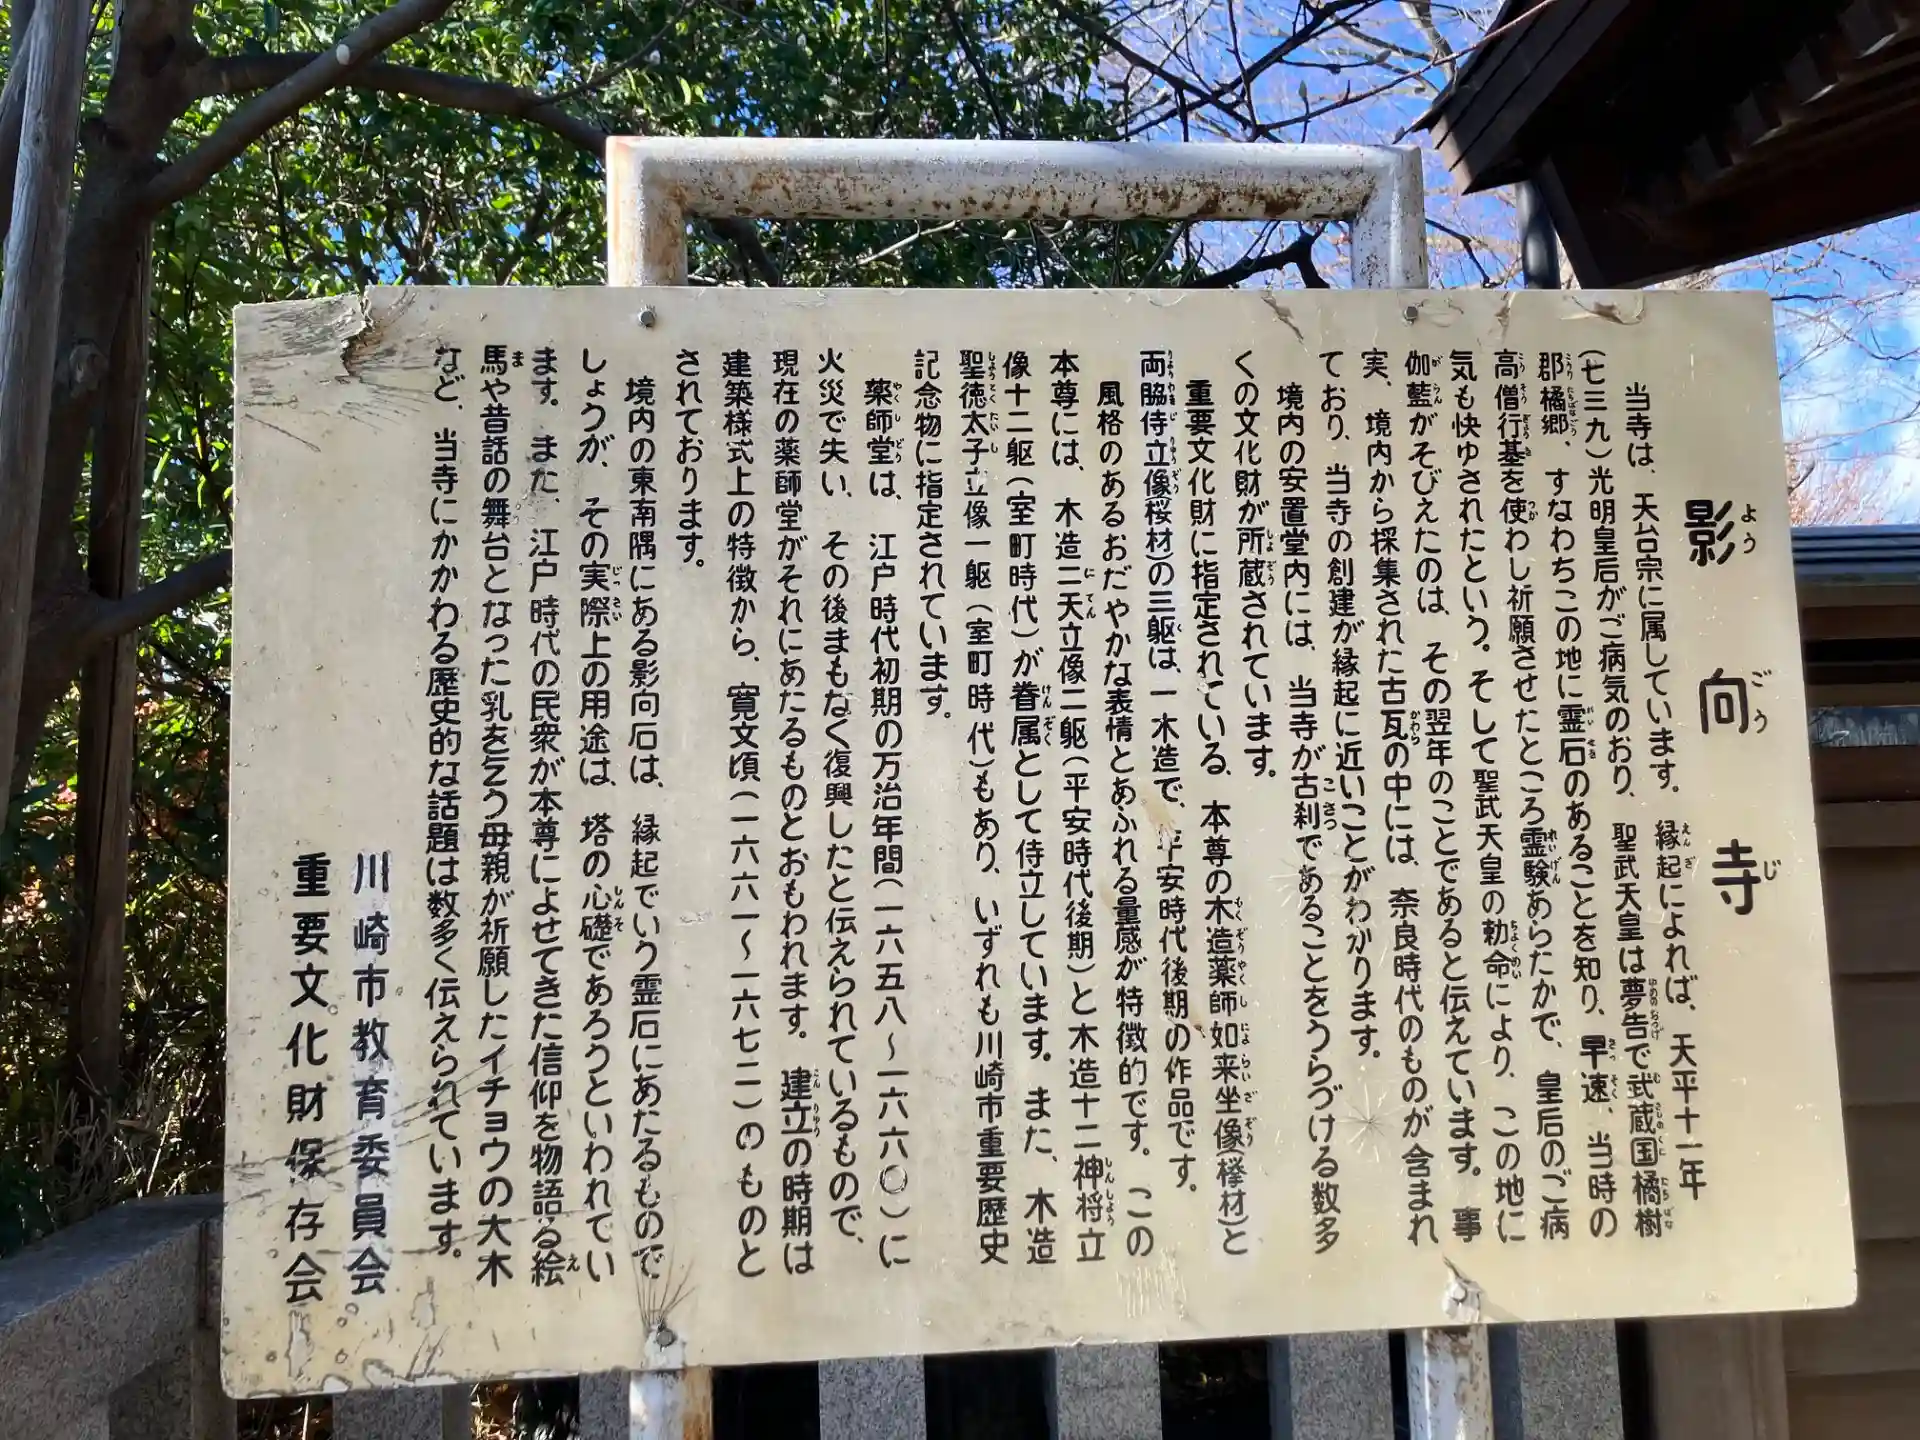 影向寺
当寺は、天台宗に属しています。縁起によれば、天平十一年
(七三九)光明皇后がご病気のおり、聖武天皇は夢告で武蔵国橘樹
郡橘郷、すなわちこの地に霊石のあることを知り、早速、当時の
高僧行基を使わし祈願させたところ霊験あらたかで、皇后のご病
気も快ゆされたという。そして聖武天皇の勅命により、この地に
伽藍がそびえたのは、その翌年のことであると伝えています。事
実、境内から採集された古瓦の中には、奈良時代のものが含まれ
ており、当寺の創建が縁起に近いことがわかります。
境内の安置堂内には、当寺が古刹であることをうらづける数多
くの文化財が所蔵されています。
重要文化財に指定されている、本尊の木造薬師如来坐像(欅材)と
両脇侍立像桜材)の三躯は、一木造で、平安時代後期の作品です。
風格のあるおだやかな表情とあふれる量感が特徴的です。この
本尊には、木造二天立像二躯(平安時代後期)と木造十二神将立
像十二躯(室町時代)が眷属として侍立しています。また、木造
聖徳太子立像一躯(室町時代)もあり、いずれも川崎市重要歴史
記念物に指定されています。
薬師堂は、江戸時代初期の万治年間(一六五八〜一六六〇)に
火災で失い、その後まもなく復興したと伝えられているもので、
現在の薬師堂がそれにあたるものとおもわれます。建立の時期は
建築様式上の特徴から、寛文頃(一六六一〜一六七二)のものと
されております。
境内の東南隅にある影向石は、縁起でいう霊石にあたるもので
しょうが、その実際上の用途は、塔の心礎であろうといわれてい
ます。また、江戸時代の民衆が本尊によせてきた信仰を物語る絵
馬や昔話の舞台となった乳を乞う母親が祈願したイチョウの大木
など、当寺にかかわる歴史的な話題は数多く伝えられています。
川崎市教育委員会
重要文化財保存会